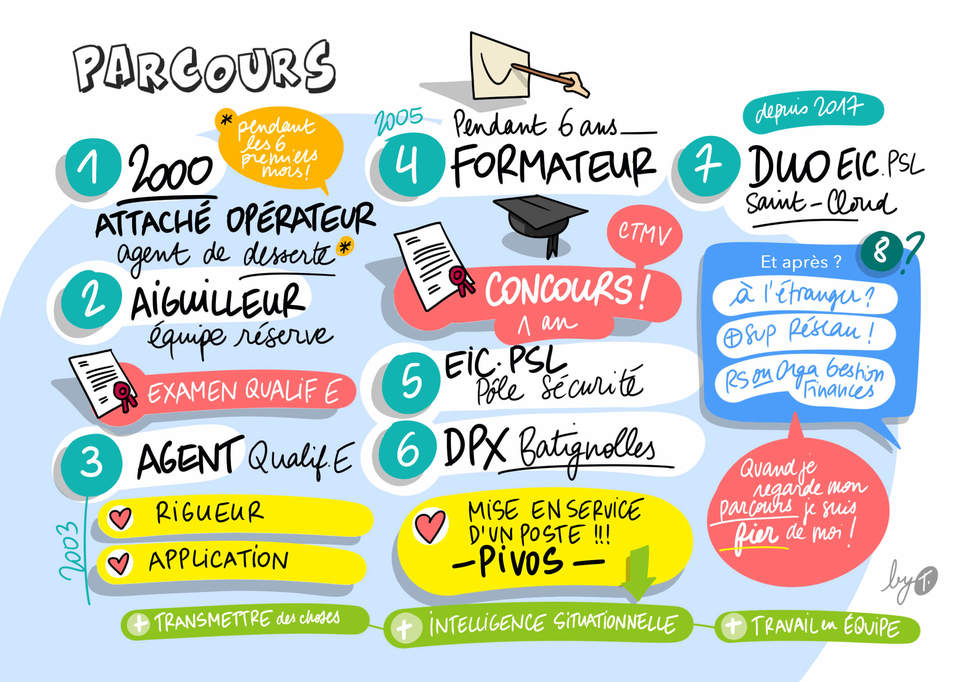 PARCOURS
1
2000
* pendant
les 6
premiers
mois !
ATTACHÉ OPÉRATEUR
agent de desserte *
2
AIGUILLEUR
équipe réserve
EXAMEN QUALIF E
3
AGENT Qualif. E
2003
RIGUEUR
APPLICATION
2005
4
Pendant 6 ans
FORMATEUR
CTMV
CONCOURS !
1 an
5
EIC. PSL
Pôle Sécurité
6
DPX Batignolles
MISE EN SERVICE
D'UN POSTE !!!
– PIVOS –
depuis 2017
7
DUO EIC. PSL
Saint-Cloud
8 ?
Et après ?
à l'étranger ?
+ SUP Réseau !
RS ou Orga Gestion
Finances
Quand je
regarde mon
parcours je suis
fier de moi !
by T.
+ TRANSMETTRE des choses
+ INTELLIGENCE SITUATIONNELLE
+ TRAVAIL en ÉQUIPE